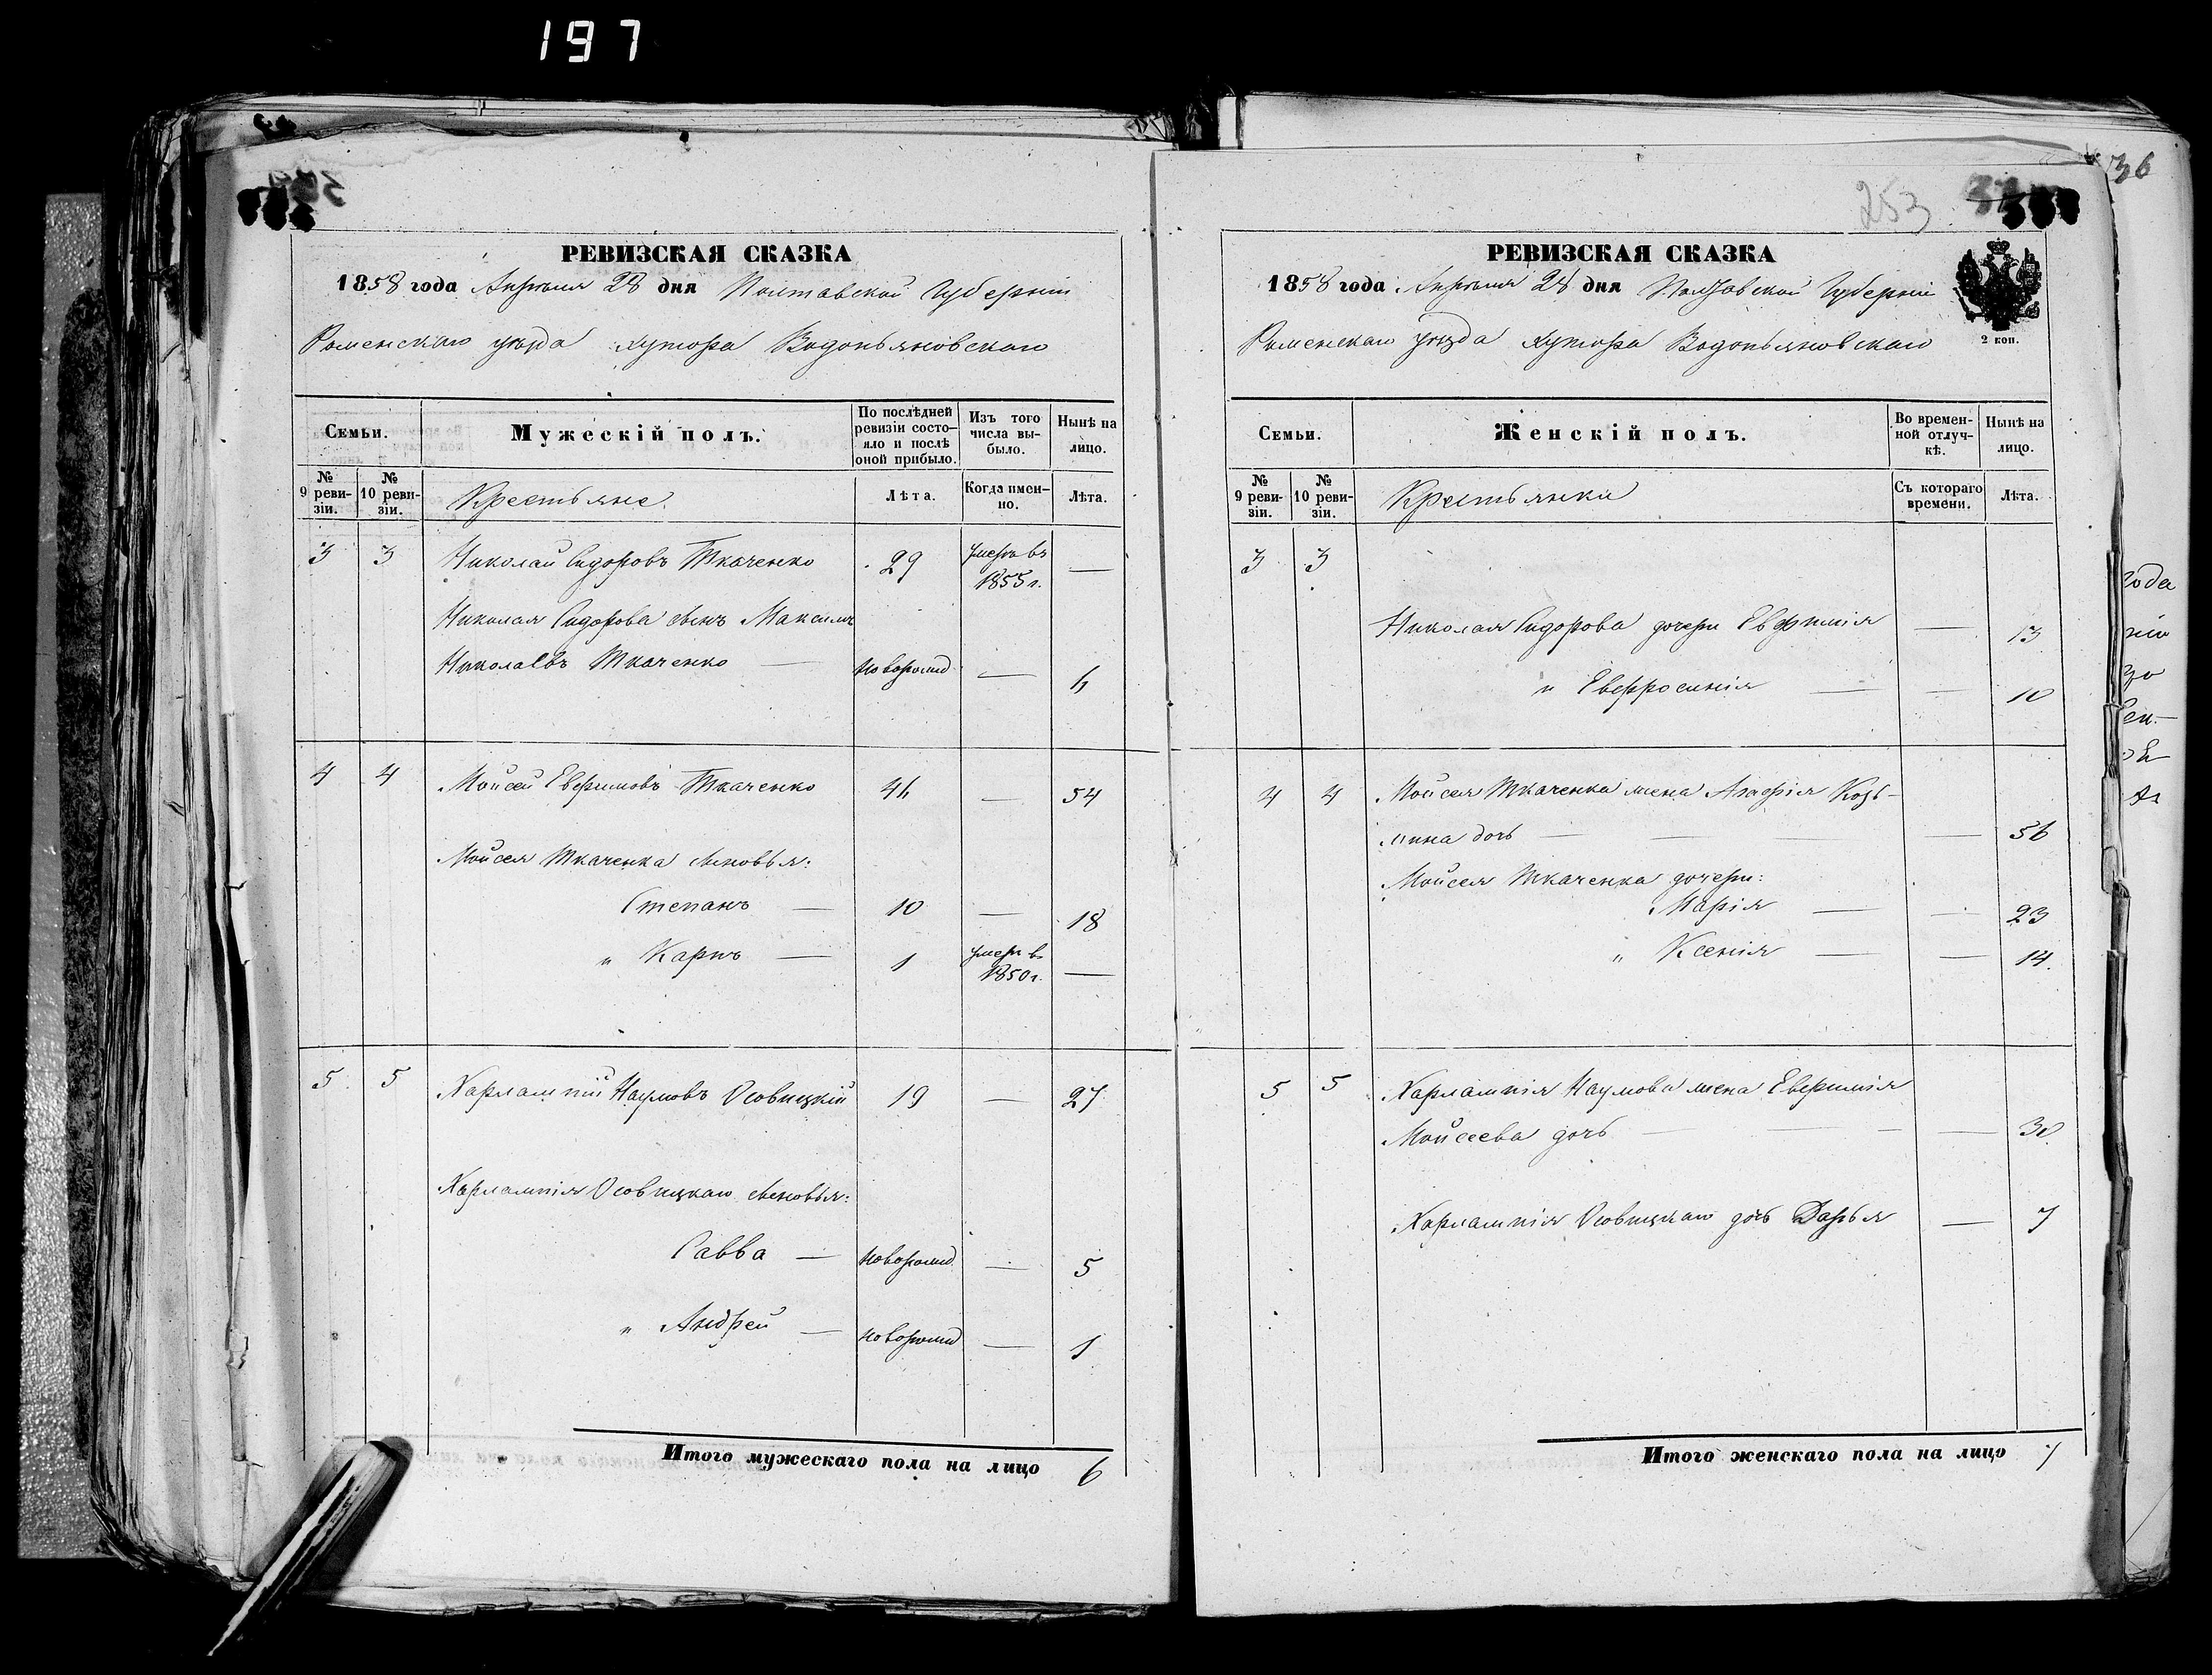 197
РЕВИЗСКАЯ СКАЗКА
1858 года Апрѣля 28 дня Полтавской Губерніи
Роменскаго уѣзда хутора Водопьяновскаго
Семьи.
Мужескій полъ.
По послѣдней ревизіи состояло и послѣ оной прибыло.
Изъ того числа выбыло.
Нынѣ на лицо.
№ 9 ревизіи.
№ 10 ревизіи.
Крестьяне.
Лѣта.
Когда именно.
Лѣта.
3 3 Николай Сидоровъ Ткаченко 29 умеръ въ 1855 г. —
Николая Сидорова сынъ Максимъ
Николаевъ Ткаченко — новорожд — 6
4 4 Мойсей Евфимовъ Ткаченко 46 — 54
Мойсея Ткаченка сыновья:
Степанъ — 10 — 18
" Карпъ — 1 умеръ въ 1850 г. —
5 5 Харлампій Наумовъ Осовицкій 19 — 27
Харлампія Осовицкаго сыновья:
Савва — новорожд — 5
" Андрей — новорожд — 1
Итого мужескаго пола на лицо 6
36
253
РЕВИЗСКАЯ СКАЗКА
1858 года Апрѣля 28 дня Полтавской Губерніи
Роменскаго уѣзда хутора Водопьяновскаго
2 коп.
Семьи.
Женскій полъ.
Во временной отлучкѣ.
Нынѣ на лицо.
№ 9 ревизіи.
№ 10 ревизіи.
Крестьянки
Съ котораго времени.
Лѣта.
3 3
Николая Сидорова дочери Евфимія — 13
" Евфросинія — — 10
4 4 Мойсея Ткаченка жена Агафія Козь-
мина дочь — — — 56
Мойсея Ткаченка дочери:
Марія — — 23
" Ксенія — — 14.
5 5 Харлампія Наумова жена Евфимія
Мойсеева дочь — — — — 30
Харлампія Осовицкаго дочь Дарья — 7
Итого женскаго пола на лицо 7
года